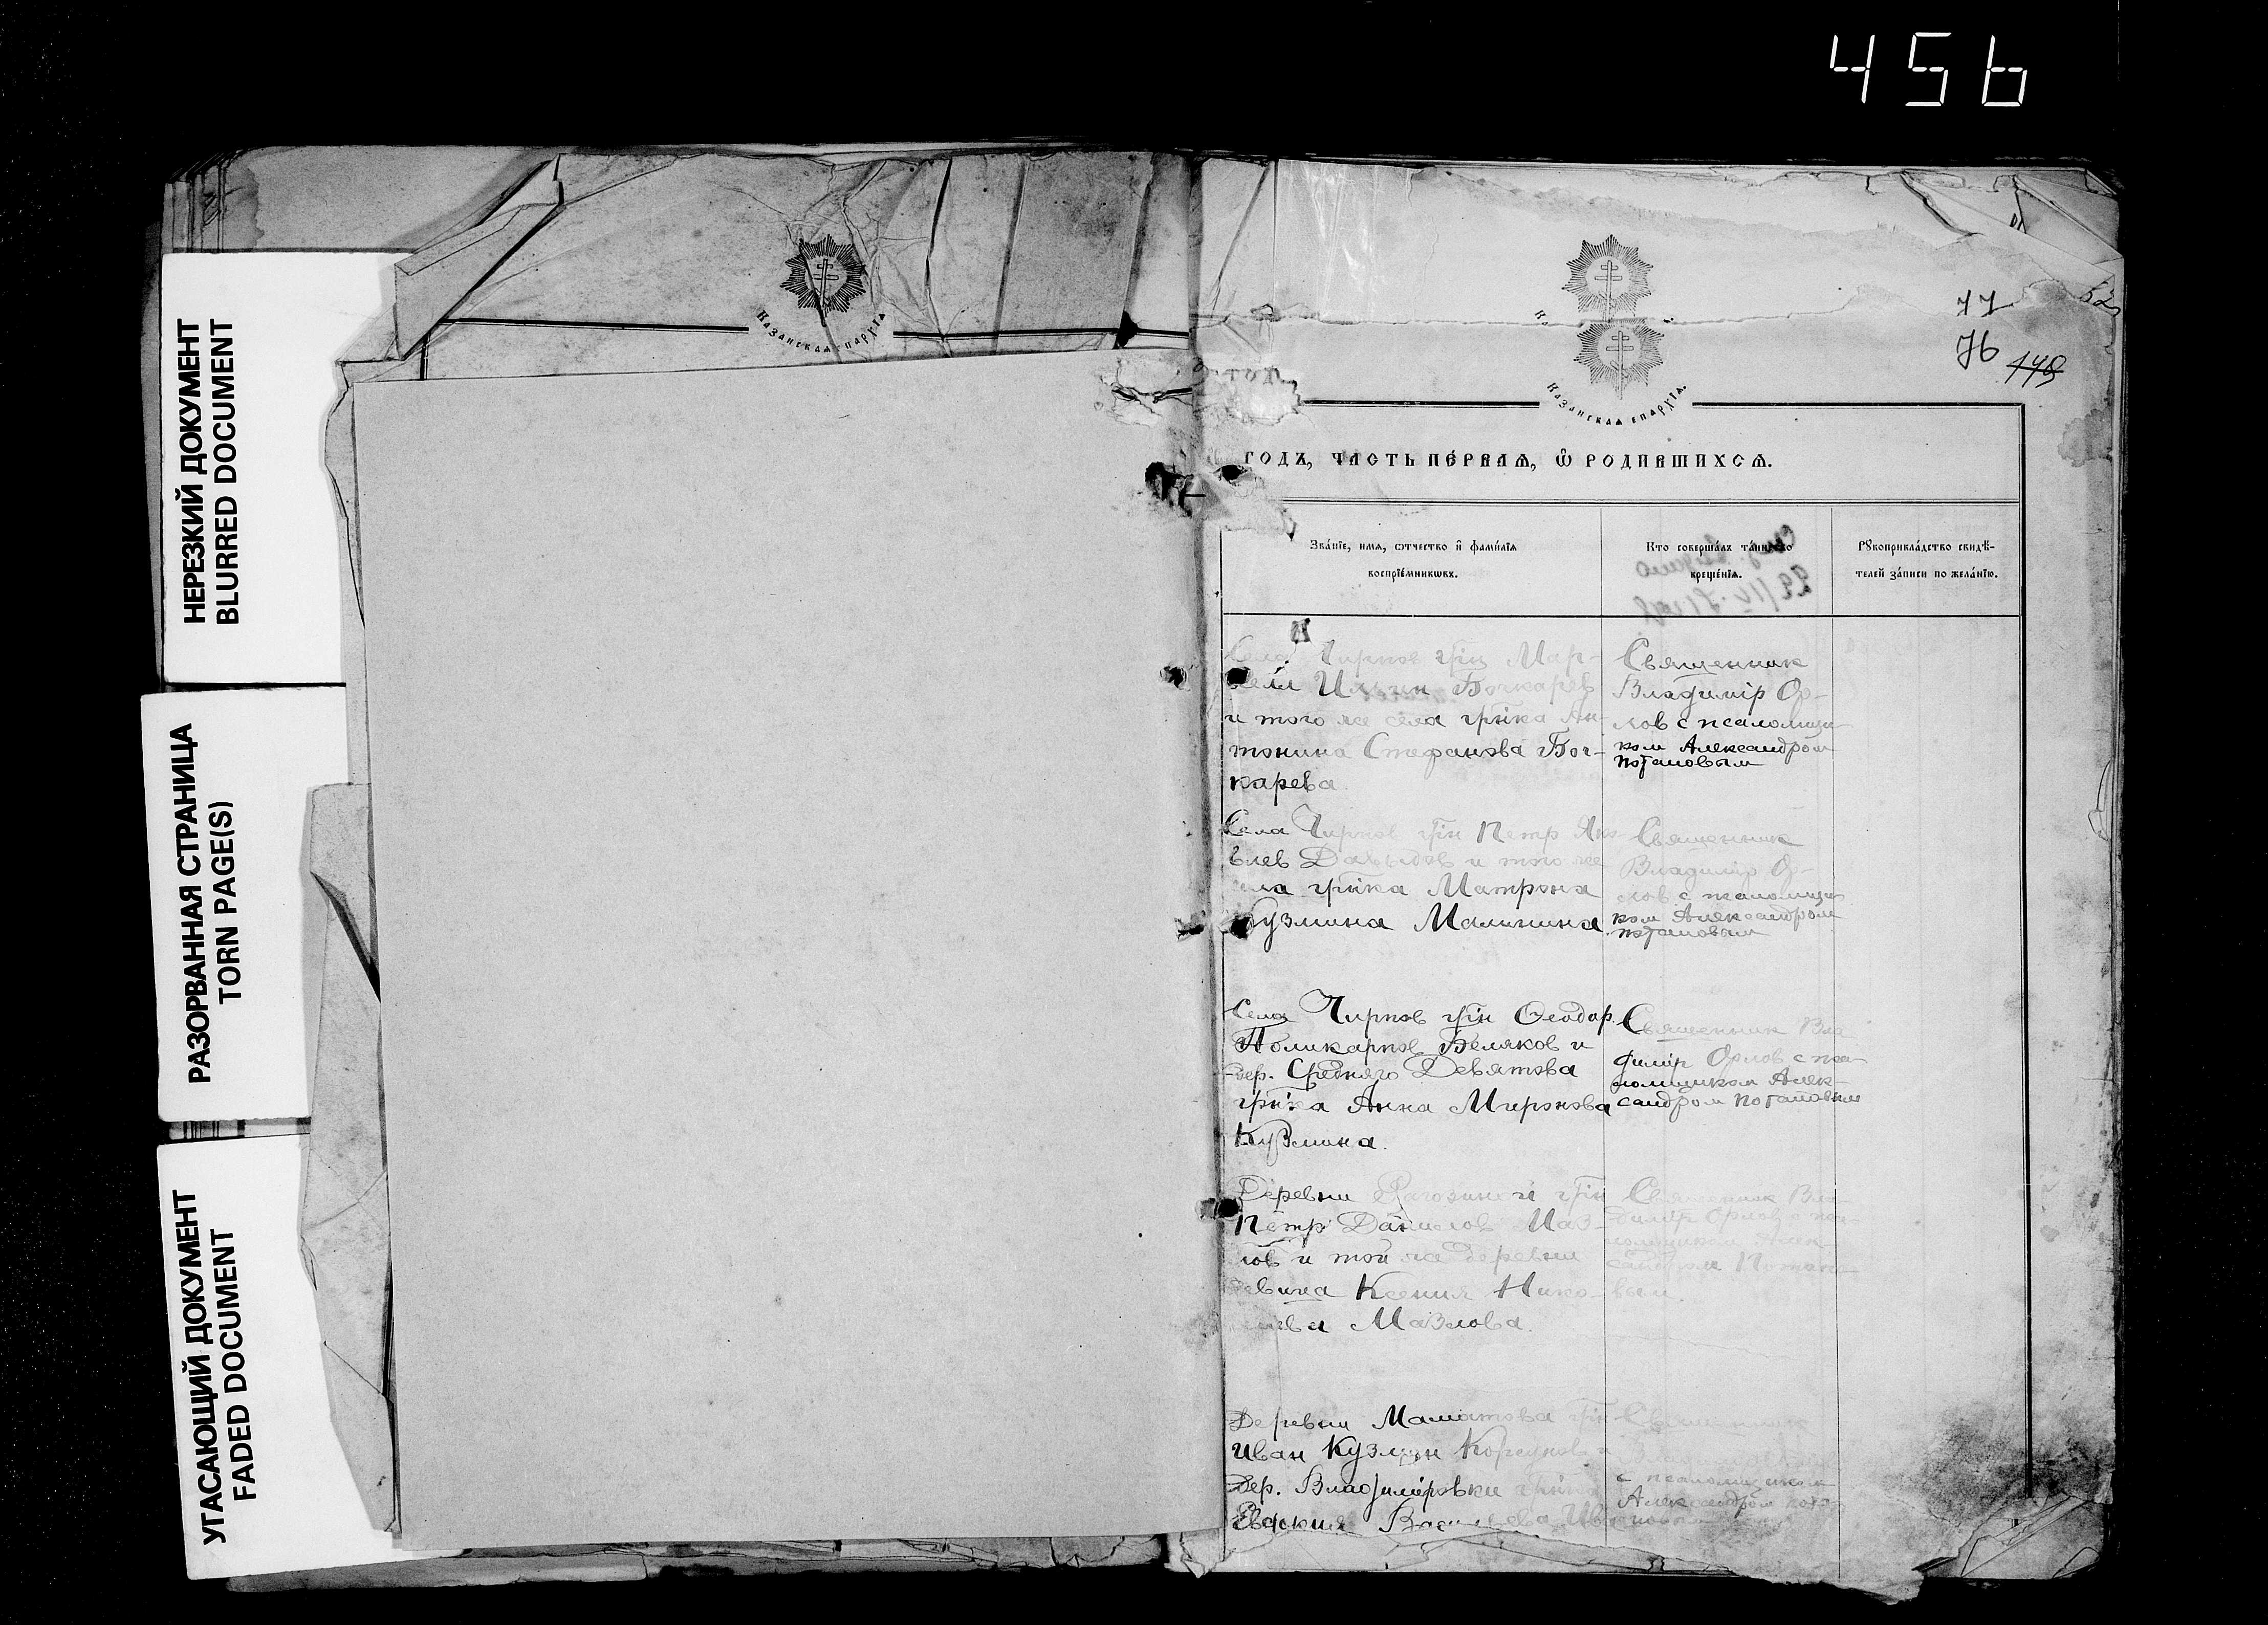 456
НЕРЕЗКИЙ ДОКУМЕНТ
BLURRED DOCUMENT
РАЗОРВАННАЯ СТРАНИЦА
TORN PAGE(S)
УГАСАЮЩИЙ ДОКУМЕНТ
FADED DOCUMENT
Казанская епархїя
Казанская епархїя.
77
76
52
ГОДЪ, ЧАСТЬ ПЕ́РВАѦ, Ѡ҆ РОДИВШИХСѦ.
Зва́нїе, имѧ, ѻтчество и҆ фами́лїѧ
воспрїе́мникѡвъ.
Кто соверша́лъ та́инство
креще́нїѧ.
Рꙋкоприкла́дство свидѣ́-
телей за́писи по жела́нїю.
Села Чирпов гр̃н Мар-
Ильин Бочкарев
и того же села гр̃нка Ан-
тонина Стефанова Боч-
карева.
Священник
Владимір Ор-
лов с псаломщи-
ком Александром
Потаповым
Села Чирпов гр̃н Петр Яко-
влев Давыдов и того же
села гр̃нка Матрона
Кузмина Малинина.
Священник
Владимір Ор-
лов с псаломщи-
ком Александром
Потаповым
Села Чирпов гр̃н Ѳеодор
Поликарпов Беляков и
дер. Средняго Девятова
гр̃нка Анна Миронова
Кузмина.
Священник Вла
димір Орлов с пса-
ломщиком Алек-
сандром Потаповым
Деревни гр̃н
Петр Данилов Маз-
лов и той же деревни
девица Ксения Нико-
лаева Мазлова.
Священник Вла
димір Орлов с пса-
ломщиком Алек
сандром Потапо-
вым.
Деревни Маматова гр̃н
Иван Кузмин и
дер. Владиміровки гр̃нка
Евдокия Васильева
Священник
с псаломщиком
Александром